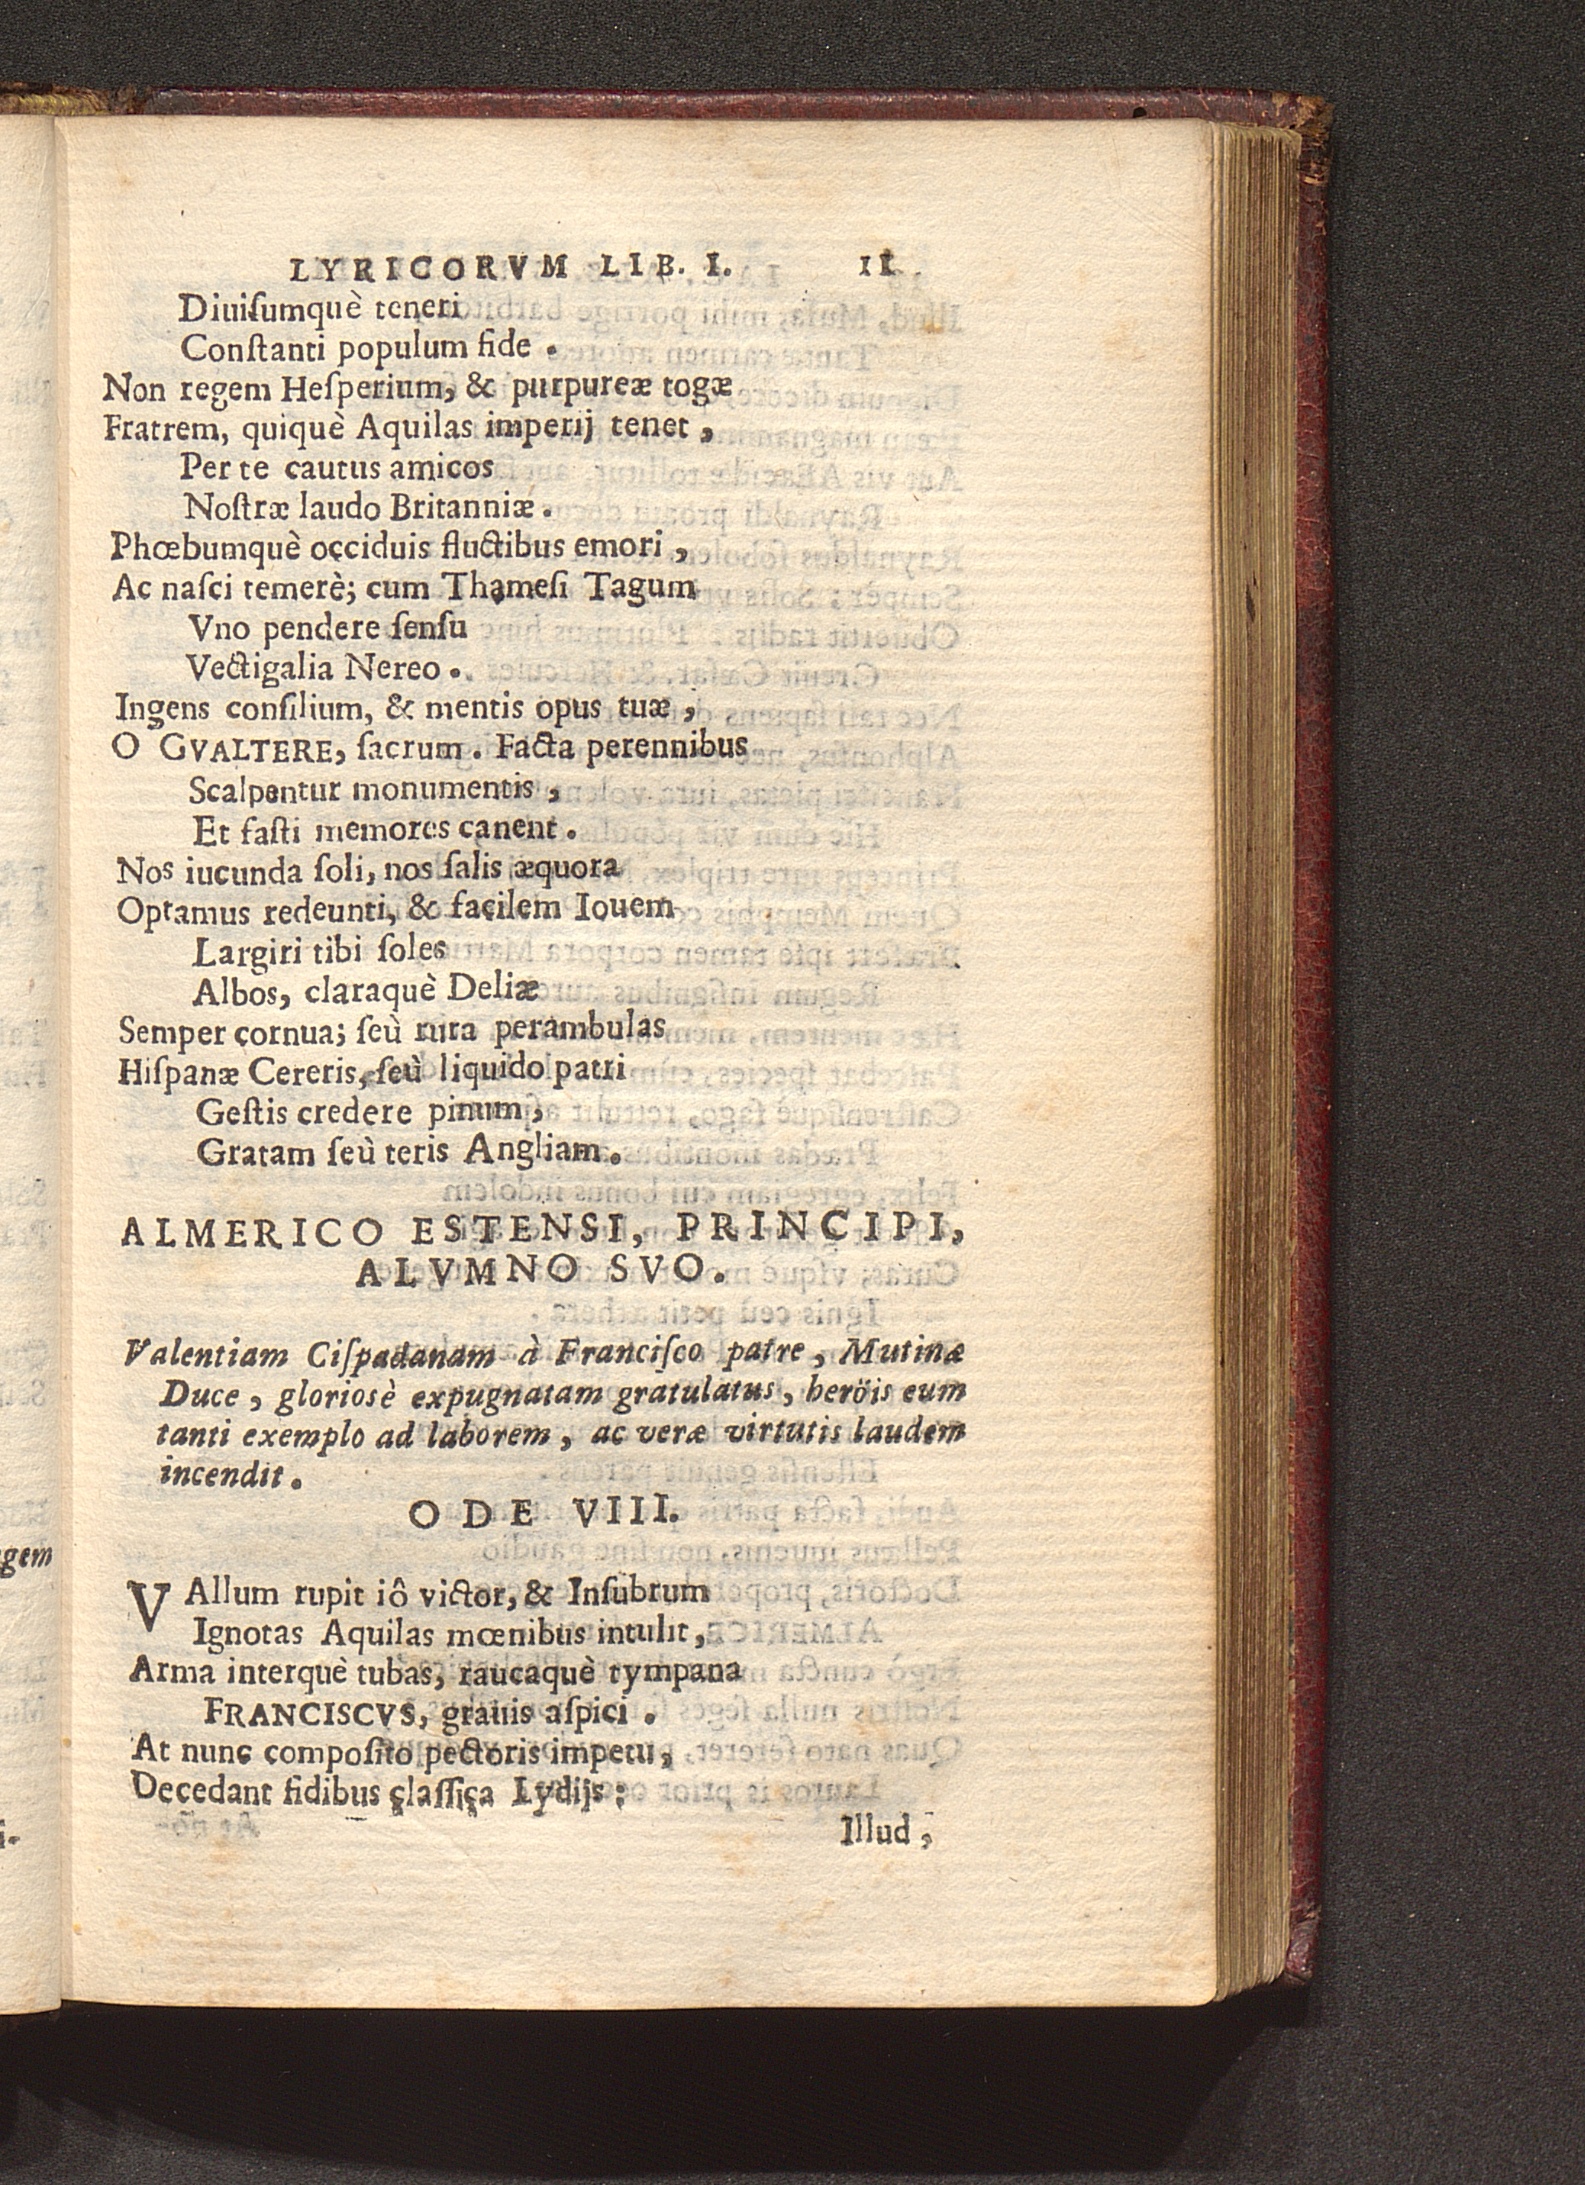 LYRICORVM LIB. I. 11
Diuiſumquè teneri
Conſtanti populum fide .
Non regem Heſperium, & purpureæ togæ
Fratrem, quiquè Aquilas imperij tenet ,
Per te cautus amicos
Noſtræ laudo Britanniæ .
Phœbumquè occiduis fluctibus emori ,
Ac naſci temerè; cum Thameſi Tagum
Vno pendere ſenſu
Vectigalia Nereo .
Ingens conſilium, & mentis opus tuæ ,
O GVALTERE, ſacrum . Facta perennibus
Scalpentur monumentis ,
Et faſti memores canent .
Nos iucunda ſoli, nos ſalis æquora
Optamus redeunti, & facilem Iouem
Largiri tibi ſoles
Albos, claraquè Deliæ
Semper cornua; ſeù rura perambulas
Hiſpanæ Cereris, ſeù liquido patri
Geſtis credere pinum ,
Gratam ſeù teris Angliam .
ALMERICO ESTENSI, PRINCIPI,
ALVMNO SVO.
Valentiam Ciſpadanam à Franciſco patre , Mutinæ
Duce , glorioſè expugnatam gratulatus , heröis eum
tanti exemplo ad laborem , ac veræ virtutis laudem
incendit .
ODE VIII.
VAllum rupit iô victor, & Inſubrum
Ignotas Aquilas mœnibus intulit ,
Arma interquè tubas, raucaquè tympana
FRANCISCVS, grauis aſpici .
At nunc compoſito pectoris impetu ,
Decedant fidibus claſſica Lydijs :
Illud ,
gem
i-